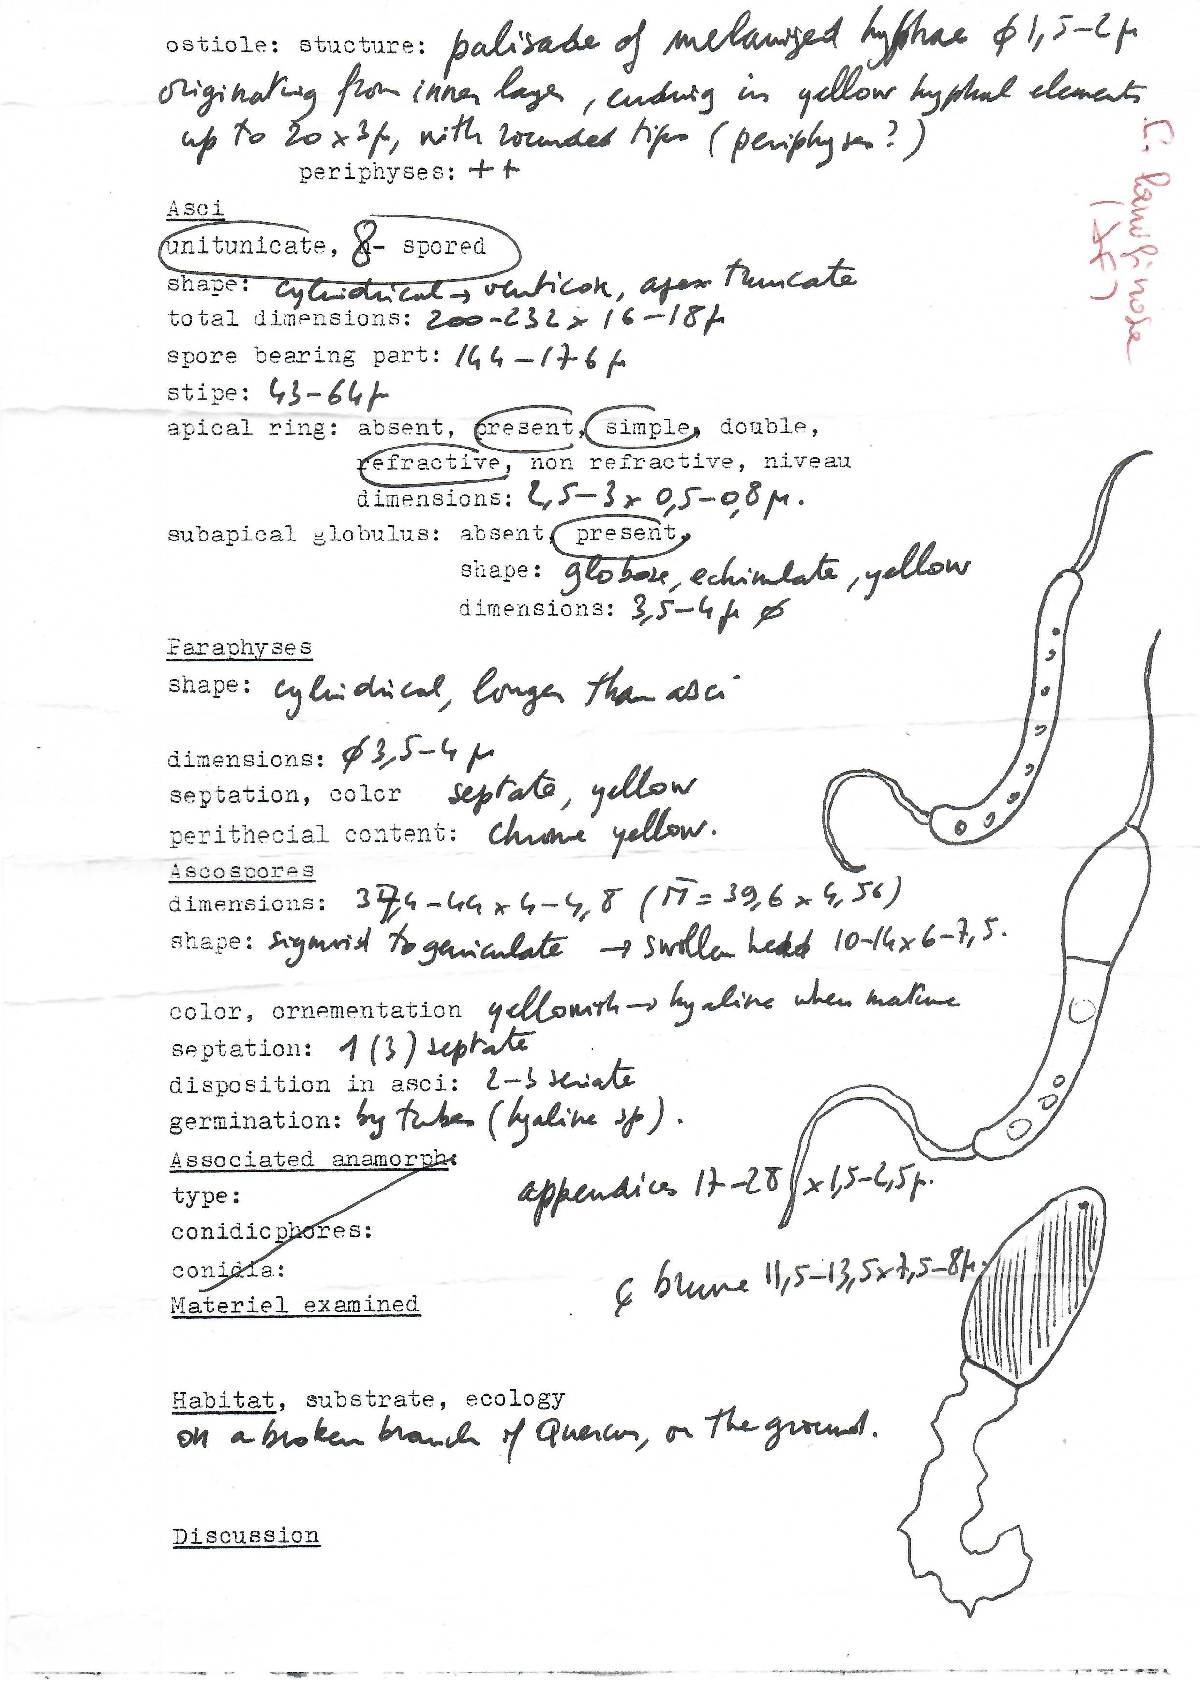 ostiole: stucture: palisade of melanized hyphae ϕ 1,5-2µ
originating from inner layer, ending in yellow hyphal elements
up to 20 x 3µ, with rounded tips (periphyses?)
periphyses: ++
Asci
unitunicate, 8- spored
shape: cylindrical → ventricose, apex truncate
total dimensions: 200-232 x 16-18µ
spore bearing part: 144-176µ
stipe: 43-64µ
apical ring: absent, present, simple, double,
refractive, non refractive, niveau
dimensions: 2,5-3 x 0,5-0,8µ.
subapical globulus: absent, present,
shape: globose, echinulate, yellow
dimensions: 3,5-4µ ϕ
Paraphyses
shape: cylindrical, longer than asci
dimensions: ϕ 3,5-4µ
septation, color septate, yellow
perithecial content: chrome yellow.
Ascospores
dimensions: 37,4-44 x 4-4,8 (M̄ = 39,6 x 4,56)
shape: sigmoid to geniculate → swollen head 10-14 x 6-7,5.
color, ornementation yellowish → hyaline when mature
septation: 1 (3) septate
disposition in asci: 2-3 seriate
germination: by tubes (hyaline sp).
Associated anamorph:
type:
appendices 17-28 x 1,5-2,5µ.
conidicphores:
conidia:
brune 11,5-13,5 x 7,5-8µ.
Materiel examined
Habitat, substrate, ecology
on a broken branch of Quercus, on the ground.
Discussion
C.